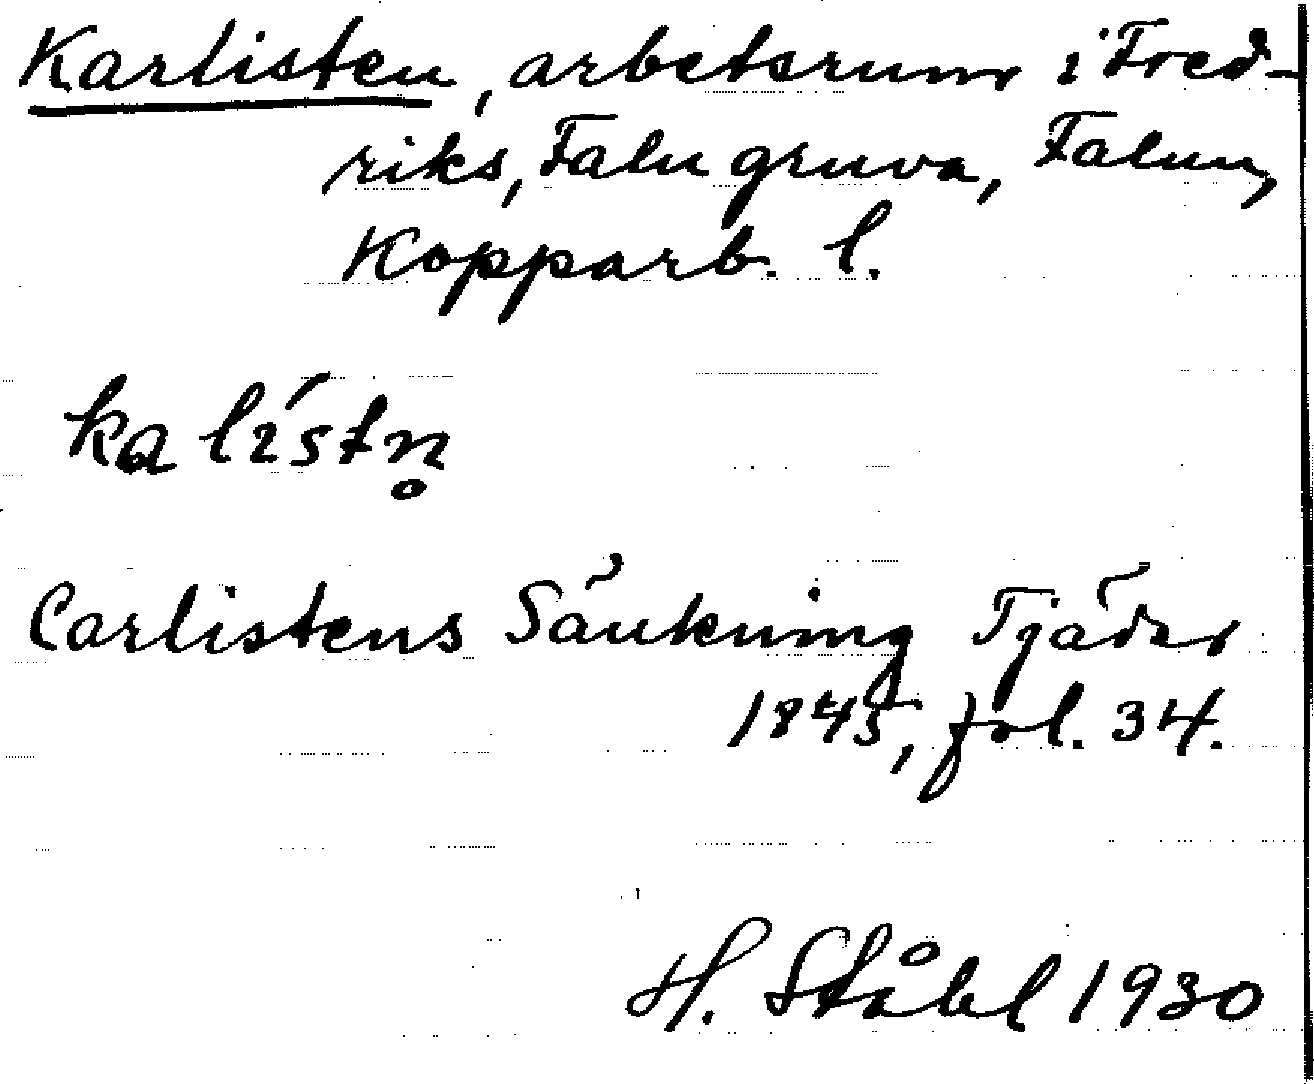 Karlisten, arbetsrum i Fred-
riks, Falu gruva, Falun,
Kopparb. l.
kalístn̥
Carlistens Sänkning Tjäder
1845, fol. 34.
H. Ståhl 1930